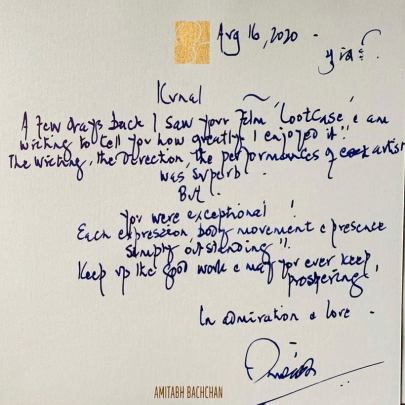 Aug 16, 2020 -
Kunal
A few days back I saw your film 'Lootcase' & am
writing to tell you how greatly I enjoyed it!!
The writing, the direction, the performances of artist
was superb.
But!
you were exceptional!
Each expression body movement & presence
simply outstanding!!
Keep up the good work & may you ever keep
prospering!
In admiration & love -
AMITABH BACHCHAN